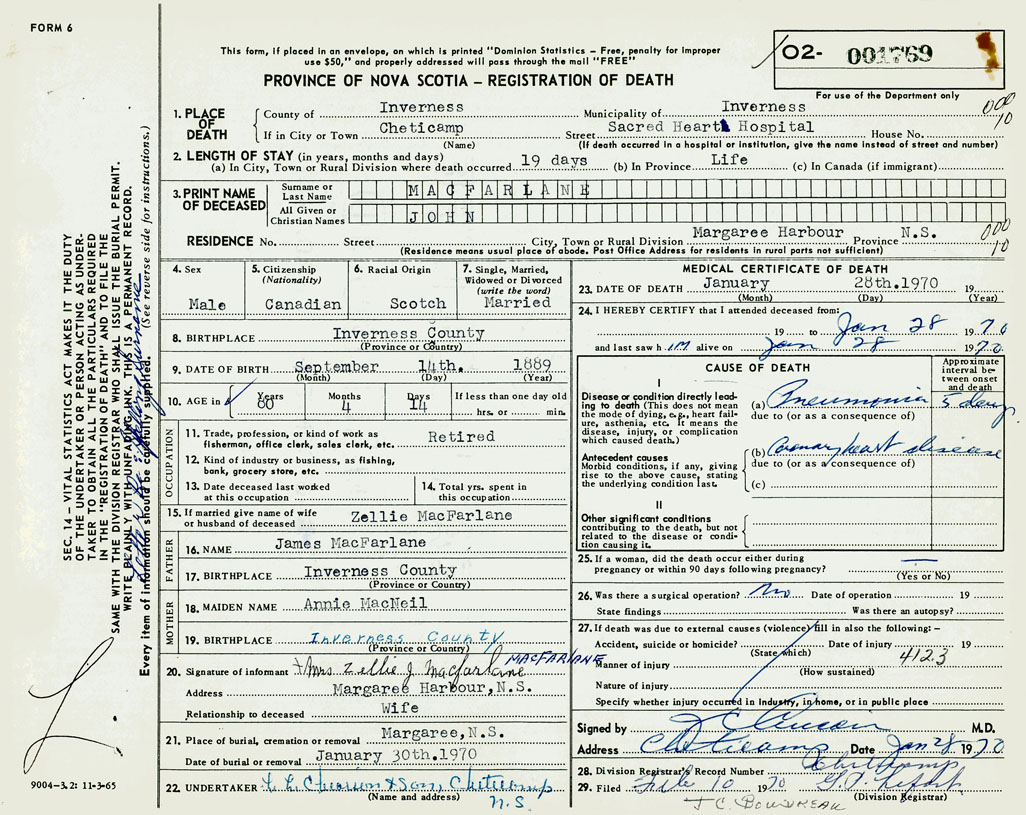 FORM 6
This form, if placed in an envelope, on which is printed "Dominion Statistics – Free, penalty for improper
use $50," and properly addressed will pass through the mail "FREE"
O2- 001769
For use of the Department only
PROVINCE OF NOVA SCOTIA – REGISTRATION OF DEATH
1. PLACE OF DEATH
County of Inverness Municipality of Inverness 000
If in City or Town Cheticamp Street Sacred Heart Hospital House No. 10
(Name) (If death occurred in a hospital or institution, give the name instead of street and number)
2. LENGTH OF STAY (in years, months and days)
(a) In City, Town or Rural Division where death occurred 19 days (b) In Province Life (c) In Canada (if immigrant)
3. PRINT NAME OF DECEASED
Surname or Last Name MACFARLANE
All Given or Christian Names JOHN
RESIDENCE No. Street City, Town or Rural Division Margaree Harbour Province N.S. 000 10
(Residence means usual place of abode. Post Office Address for residents in rural parts not sufficient)
4. Sex Male
5. Citizenship (Nationality) Canadian
6. Racial Origin Scotch
7. Single, Married, Widowed or Divorced (write the word) Married
8. BIRTHPLACE Inverness County
(Province or Country)
9. DATE OF BIRTH September 14th. 1889
(Month) (Day) (Year)
10. AGE in Years 80 Months 4 Days 14 If less than one day old
hrs. or min.
OCCUPATION
11. Trade, profession, or kind of work as Retired
fisherman, office clerk, sales clerk, etc.
12. Kind of industry or business, as fishing,
bank, grocery store, etc.
13. Date deceased last worked
at this occupation
14. Total yrs. spent in
this occupation
15. If married give name of wife
or husband of deceased Zellie MacFarlane
FATHER
16. NAME James MacFarlane
17. BIRTHPLACE Inverness County
(Province or Country)
MOTHER
18. MAIDEN NAME Annie MacNeil
19. BIRTHPLACE Inverness County
(Province or Country)
20. Signature of informant Mrs. Zellie J. Macfarlane MACFARLANE
Address Margaree Harbour, N.S.
Relationship to deceased Wife
21. Place of burial, cremation or removal Margaree, N.S.
Date of burial or removal January 30th.1970
22. UNDERTAKER & Son, Cheticamp
(Name and address) N.S.
MEDICAL CERTIFICATE OF DEATH
23. DATE OF DEATH January 28th.1970 19
(Month) (Day) (Year)
24. I HEREBY CERTIFY that I attended deceased from:
19 to Jan 28 1970
and last saw h im alive on Jan 28 1970
CAUSE OF DEATH
Approximate interval between onset and death
I
Disease or condition directly leading to death (This does not mean the mode of dying, e.g., heart failure, asthenia, etc. It means the disease, injury, or complication which caused death.)
(a) Pneumonia 5 days
due to (or as a consequence of)
Antecedent causes
Morbid conditions, if any, giving rise to the above cause, stating the underlying condition last.
(b) Coronary heart disease
due to (or as a consequence of)
(c)
II
Other significant conditions
contributing to the death, but not related to the disease or condition causing it.
25. If a woman, did the death occur either during
pregnancy or within 90 days following pregnancy? —
(Yes or No)
26. Was there a surgical operation? No Date of operation 19
State findings Was there an autopsy?
27. If death was due to external causes (violence) fill in also the following: –
Accident, suicide or homicide? Date of injury 19
(State which) 4123
Manner of injury
(How sustained)
Nature of injury
Specify whether injury occurred in industry, in home, or in public place
Signed by M.D.
Address Cheticamp Date Jan 28 1970
28. Division Registrar's Record Number Cheticamp
29. Filed Feb 10 1970
(Division Registrar)
J C. BOUDREAU
SEC. 14 – VITAL STATISTICS ACT MAKES IT THE DUTY
OF THE UNDERTAKER OR PERSON ACTING AS UNDER-
TAKER TO OBTAIN ALL THE PARTICULARS REQUIRED
IN THE "REGISTRATION OF DEATH" AND TO FILE THE
SAME WITH THE DIVISION REGISTRAR WHO SHALL ISSUE THE BURIAL PERMIT.
WRITE PLAINLY WITH UNFADING INK. THIS IS A PERMANENT RECORD.
Every item of information should be carefully supplied. (See reverse side for instructions.)
9004-3.2: 11-3-65